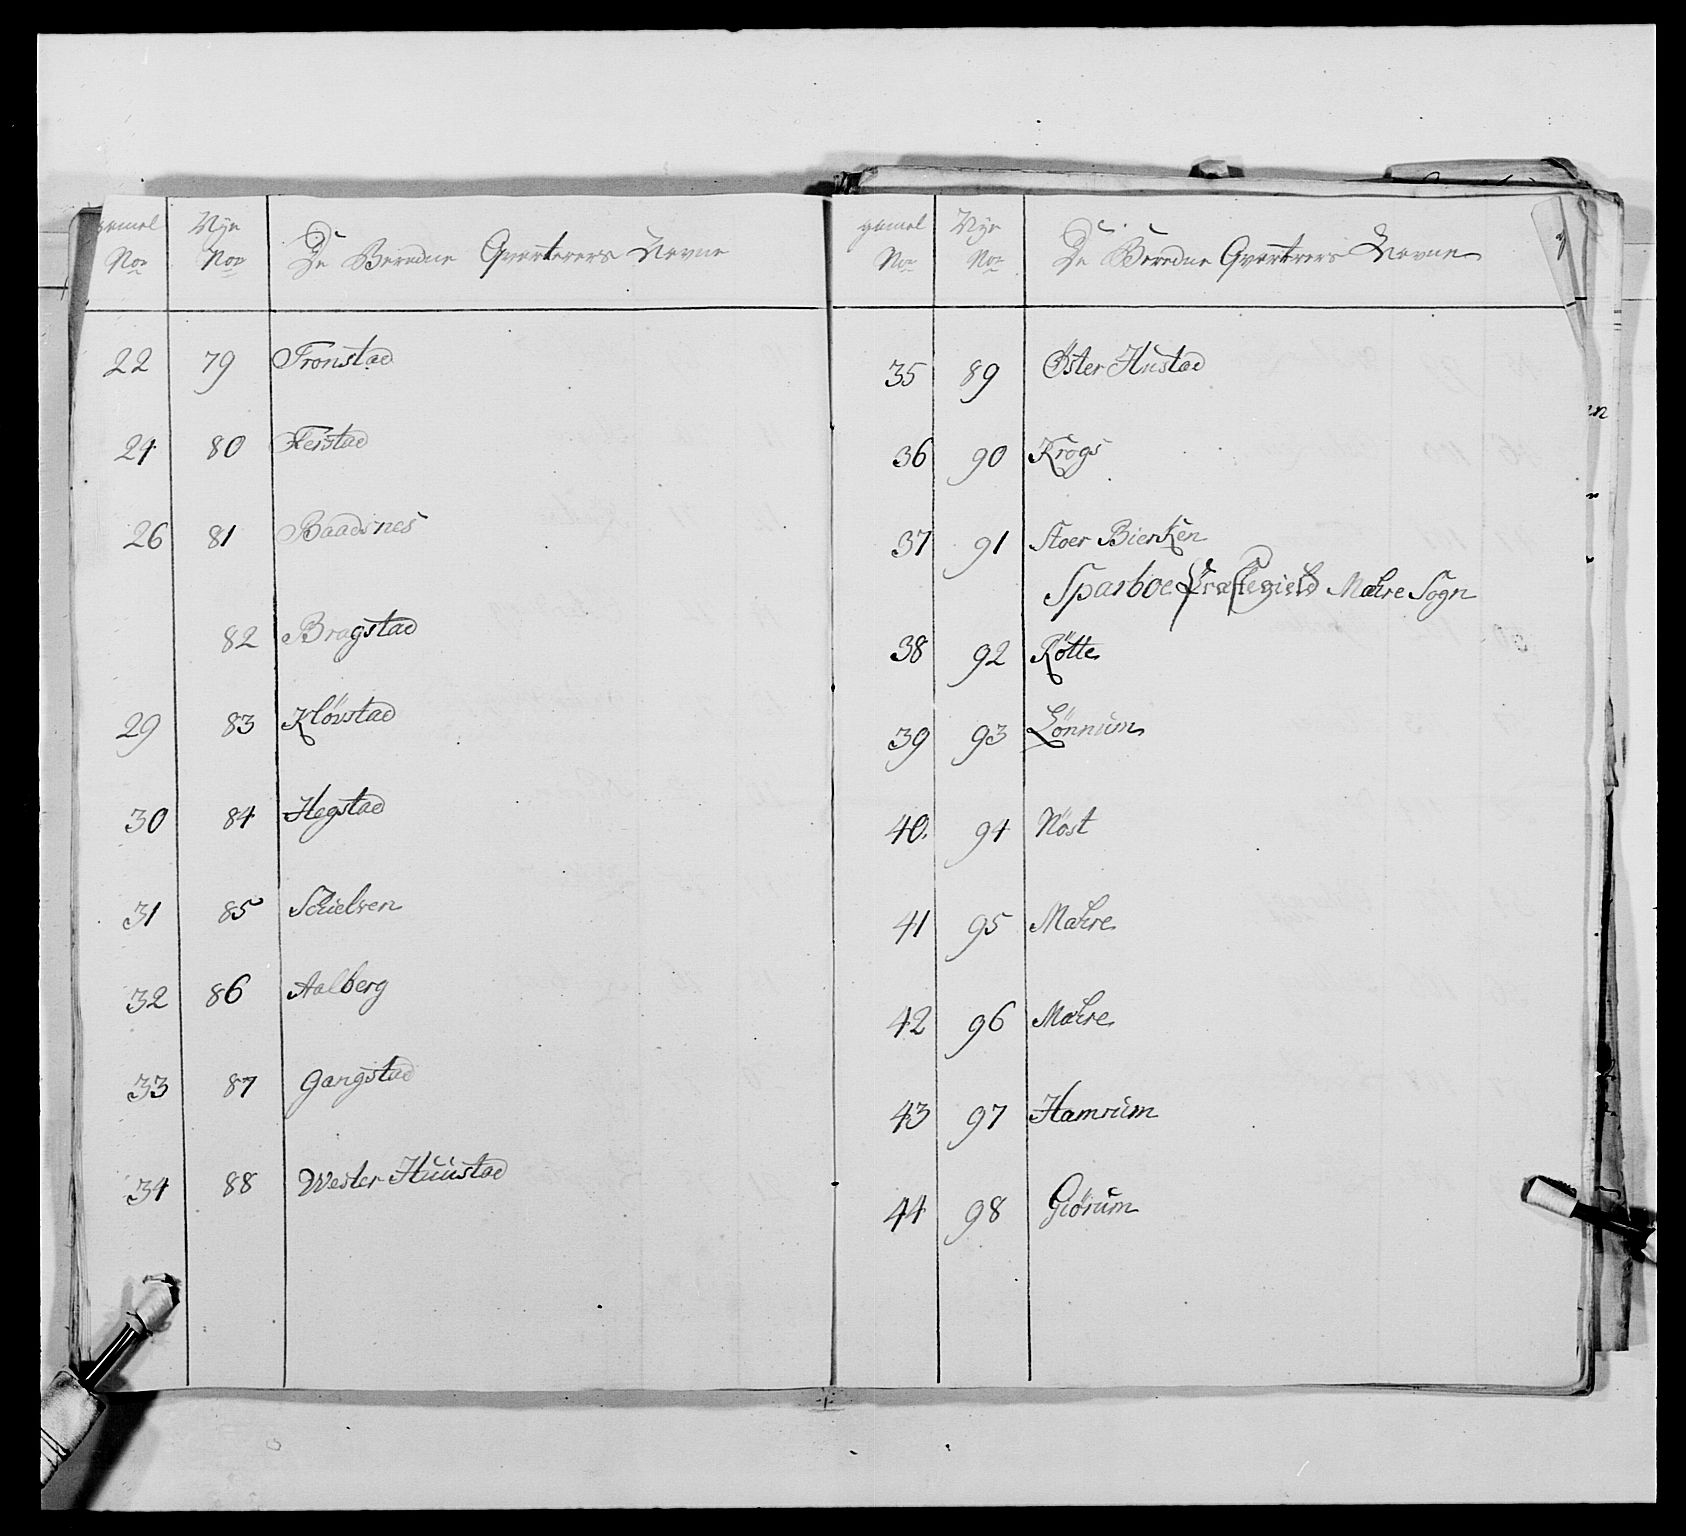 gamel Nye
No No De Beredne Qvarterers Navne
22 79 Tronstad
24 80 Ferstad
26 81 Baadsnes
82 Bragstad
29 83 Kløvstad
30 84 Hegstad
31 85 Schielven
32 86 Aalberg
33 87 Gangstad
34 88 Wester Huustad
gamel Nye
No No De Beredne Qvarterers Navne
35 89 Øster Hustad
36 90 Krogs
37 91 Stoer Bierken
Sparboe Præstegield Mahre Sogn
38 92 Røtte
39 93 Lønnum
40. 94 Nøst
41 95 Mahre
42 96 Mahre
43 97 Hamrum
44 98 Giørum